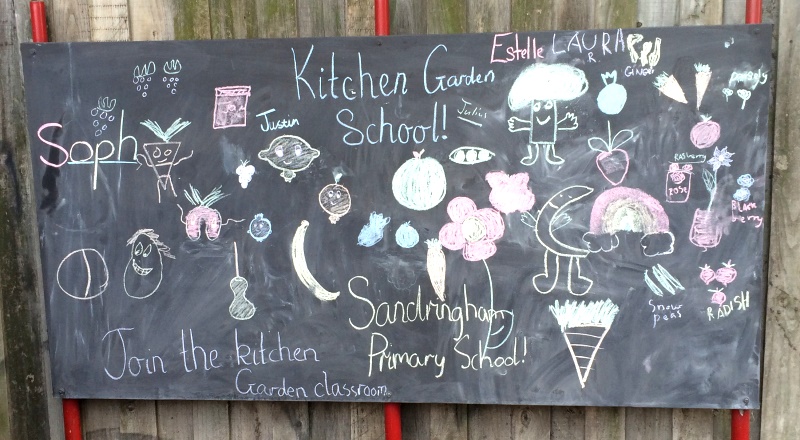 Estelle LAURA
R
Kitchen Garden
School!
Julius
GINGER
parsely
Justin
Soph
Rasberry
ROSE
Black
berry
Sandringham
Primary School!
Snow
peas
RADISH
Join the kitchen
Garden classroom.